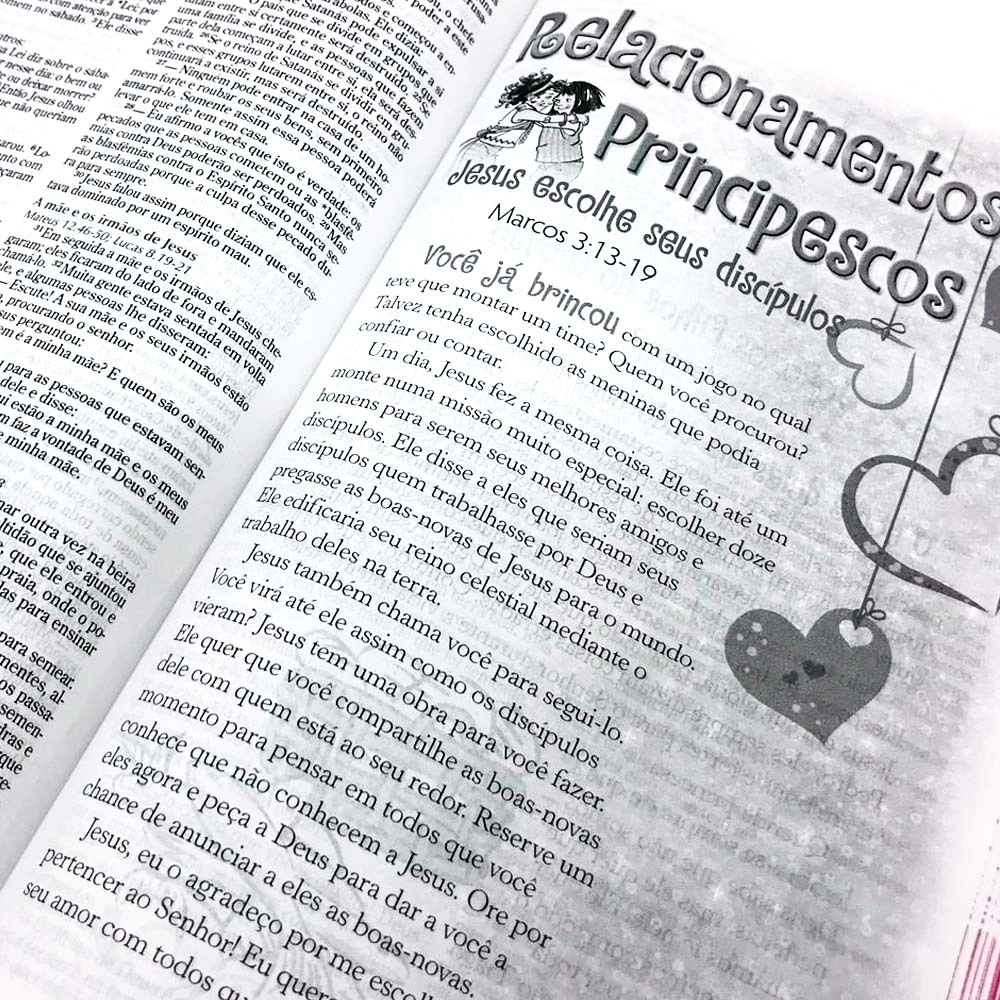 com atenção para ver
no sábado. Ele disse
a Lei diz sobre o sába-
nesse dia: o bem ou
ou deixar morrer?
Então Jesus olhou
que não queriam
poder a este
começou a en-
Ele dizia:
pode expulsar a si
em grupos que
será destruído. ²⁵Se
uma família se divide, e as pessoas que fazem
parte dela começam a lutar entre si, ela será des-
truída. ²⁶Se o reino de Satanás se dividir em gru-
pos, e esses grupos lutarem entre si, o reino não
continuará a existir, mas será destruído.
²⁷— Ninguém pode entrar na casa de um ho-
mem forte e roubar os seus bens, sem primeiro
amarrá-lo. Somente assim essa pessoa poderá
levar o que ele tem em casa.
²⁸— Eu afirmo a vocês que isto é verdade: os
pecados que as pessoas cometem ou as blasfê-
mias contra Deus poderão ser perdoados. ²⁹Mas
as blasfêmias contra o Espírito Santo nunca se-
rão perdoadas porque a culpa desse pecado du-
ra para sempre.
³⁰Jesus falou assim porque diziam que ele es-
tava dominado por um espírito mau.
A mãe e os irmãos de Jesus
Mateus 12.46-50; Lucas 8.19-21
³¹Em seguida a mãe e os irmãos de Jesus che-
garam; eles ficaram do lado de fora e mandaram
chamá-lo. ³²Muita gente estava sentada em volta
dele, e algumas pessoas lhe disseram:
— Escute! A sua mãe e os seus irmãos estão
procurando o senhor.
perguntou:
é a minha mãe? E quem são os meus
para as pessoas que estavam sen-
dele e disse:
estão a minha mãe e os meus
faz a vontade de Deus é meu
minha mãe.
outra vez na beira
multidão que se ajuntou
que ele entrou e
praia, onde o po-
para ensinar
para semear.
sementes, al-
passa-
semen-
e
Relacionamentos
Principescos
Jesus escolhe seus discípulos
Marcos 3:13-19
Você já brincou com um jogo no qual
teve que montar um time? Quem você procurou?
Talvez tenha escolhido as meninas que podia
confiar ou contar.
Um dia, Jesus fez a mesma coisa. Ele foi até um
monte numa missão muito especial; escolher doze
homens para serem seus melhores amigos e
discípulos. Ele disse a eles que seriam seus
discípulos quem trabalhasse por Deus e
pregasse as boas-novas de Jesus para o mundo.
Ele edificaria seu reino celestial mediante o
trabalho deles na terra.
Jesus também chama você para segui-lo.
Você virá até ele assim como os discípulos
vieram? Jesus tem uma obra para você fazer.
Ele quer que você compartilhe as boas-novas
dele com quem está ao seu redor. Reserve um
momento para pensar em todos que você
conhece que não conhecem a Jesus. Ore por
eles agora e peça a Deus para dar a você a
chance de anunciar a eles as boas-novas.
Jesus, eu o agradeço por me
pertencer ao Senhor! Eu
seu amor com todos